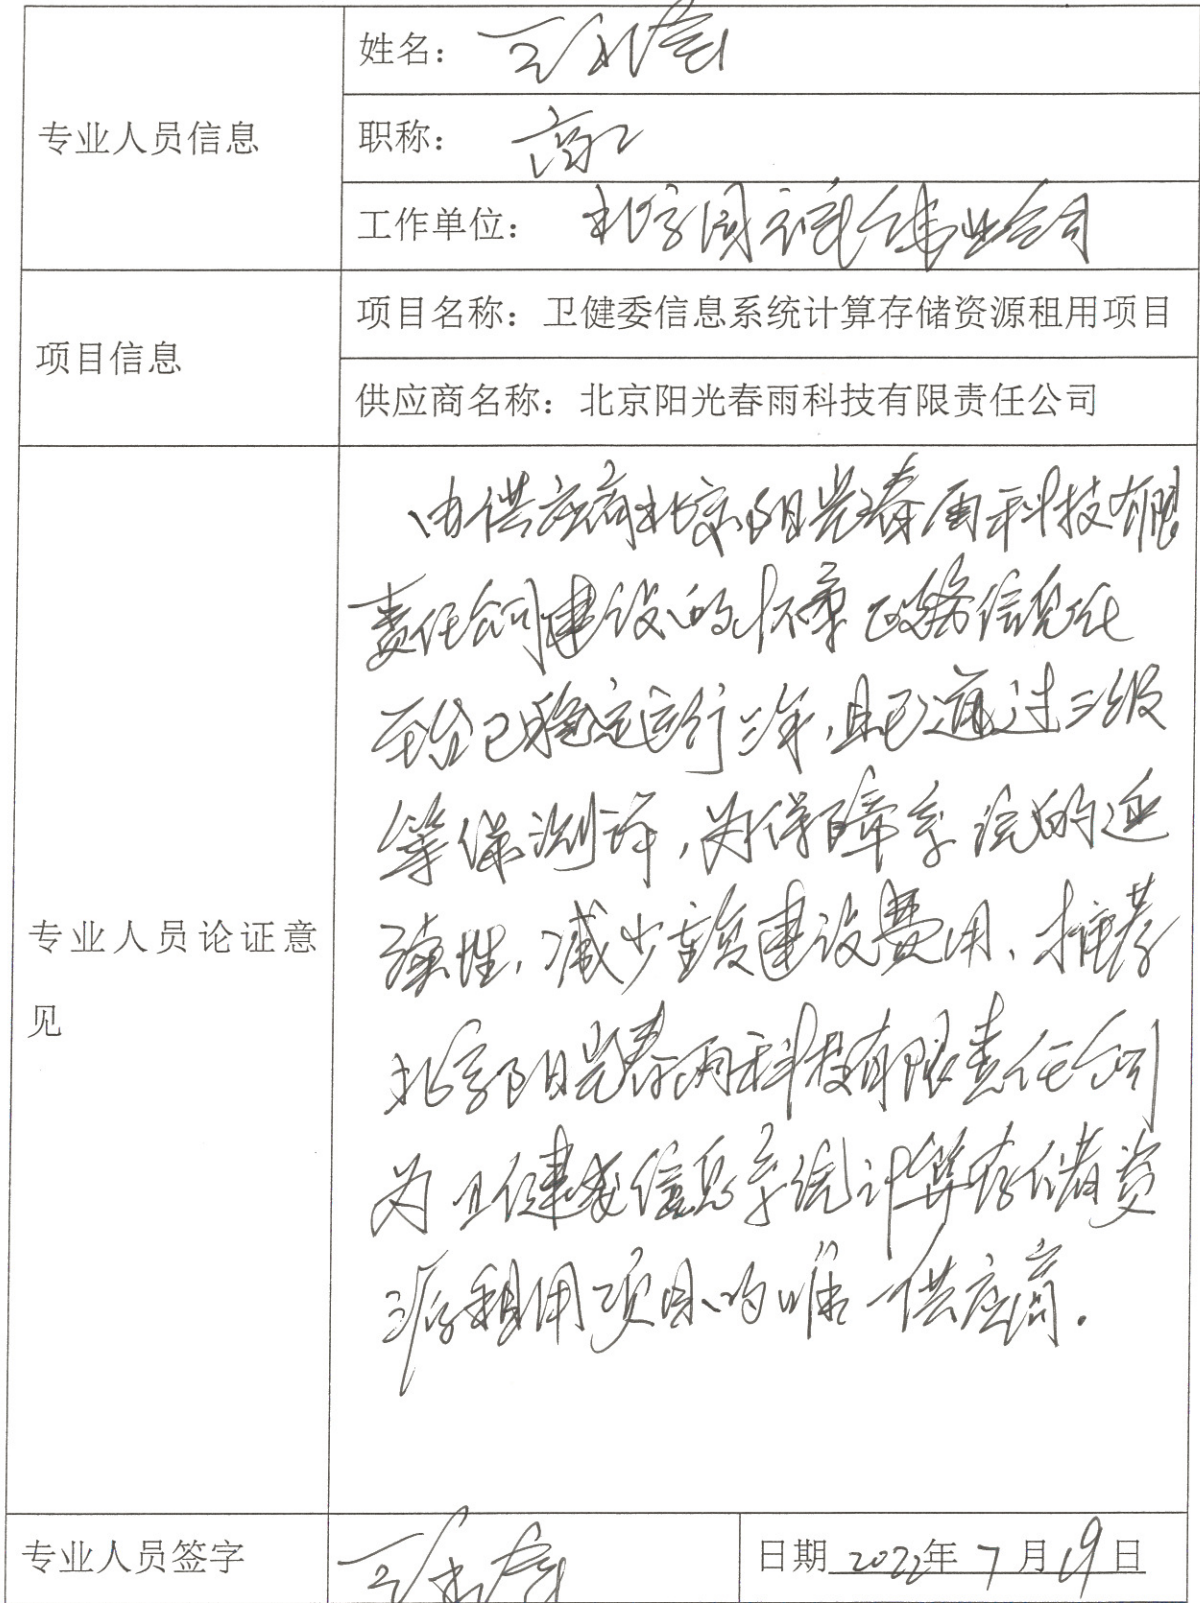 专业人员信息
姓名：王
职称：高工
工作单位：北京国诚伟业公司
项目信息
项目名称：卫健委信息系统计算存储资源租用项目
供应商名称：北京阳光春雨科技有限责任公司
专业人员论证意
见
由供应商北京阳光春雨科技有限
责任公司建设的怀柔政务信息化
平台已稳定运行三年,且已通过三级
等保测评,为保障系统的连
续性,减少重复建设费用,推荐
北京阳光春雨科技有限责任公司
为卫健委信息系统计算存储资
源租用项目的唯一供应商.
专业人员签字 王
日期 2022年7月19日